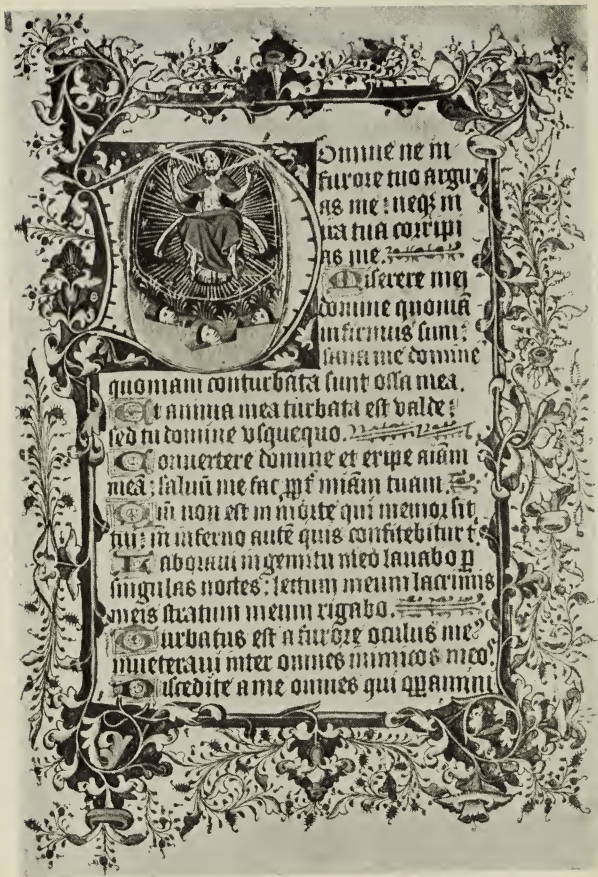 Domine ne in
furore tuo argu
as me : neq3 in
ira tua corripi
as me.
Miserere mei
domine quoniā
infirmus sum :
sana me domine
quoniam conturbata sunt ossa mea.
Et anima mea turbata est valde :
sed tu domine vsquequo.
Conuertere domine et eripe aīam
meā : saluū me fac ꝓpt̄ miāꝫ tuam.
Qm̄ non est in morte qui memor sit
tui : in inferno autē quis confitebitur t̄
Laboraui in gemitu meo lauabo ꝑ
singulas noctes : lectum meum lacrimis
meis stratum meum rigabo.
Turbatus est a furore oculus me᷒
inueteraui inter omnes inimicos meo᷒
Discedite a me omnes qui oꝑamini